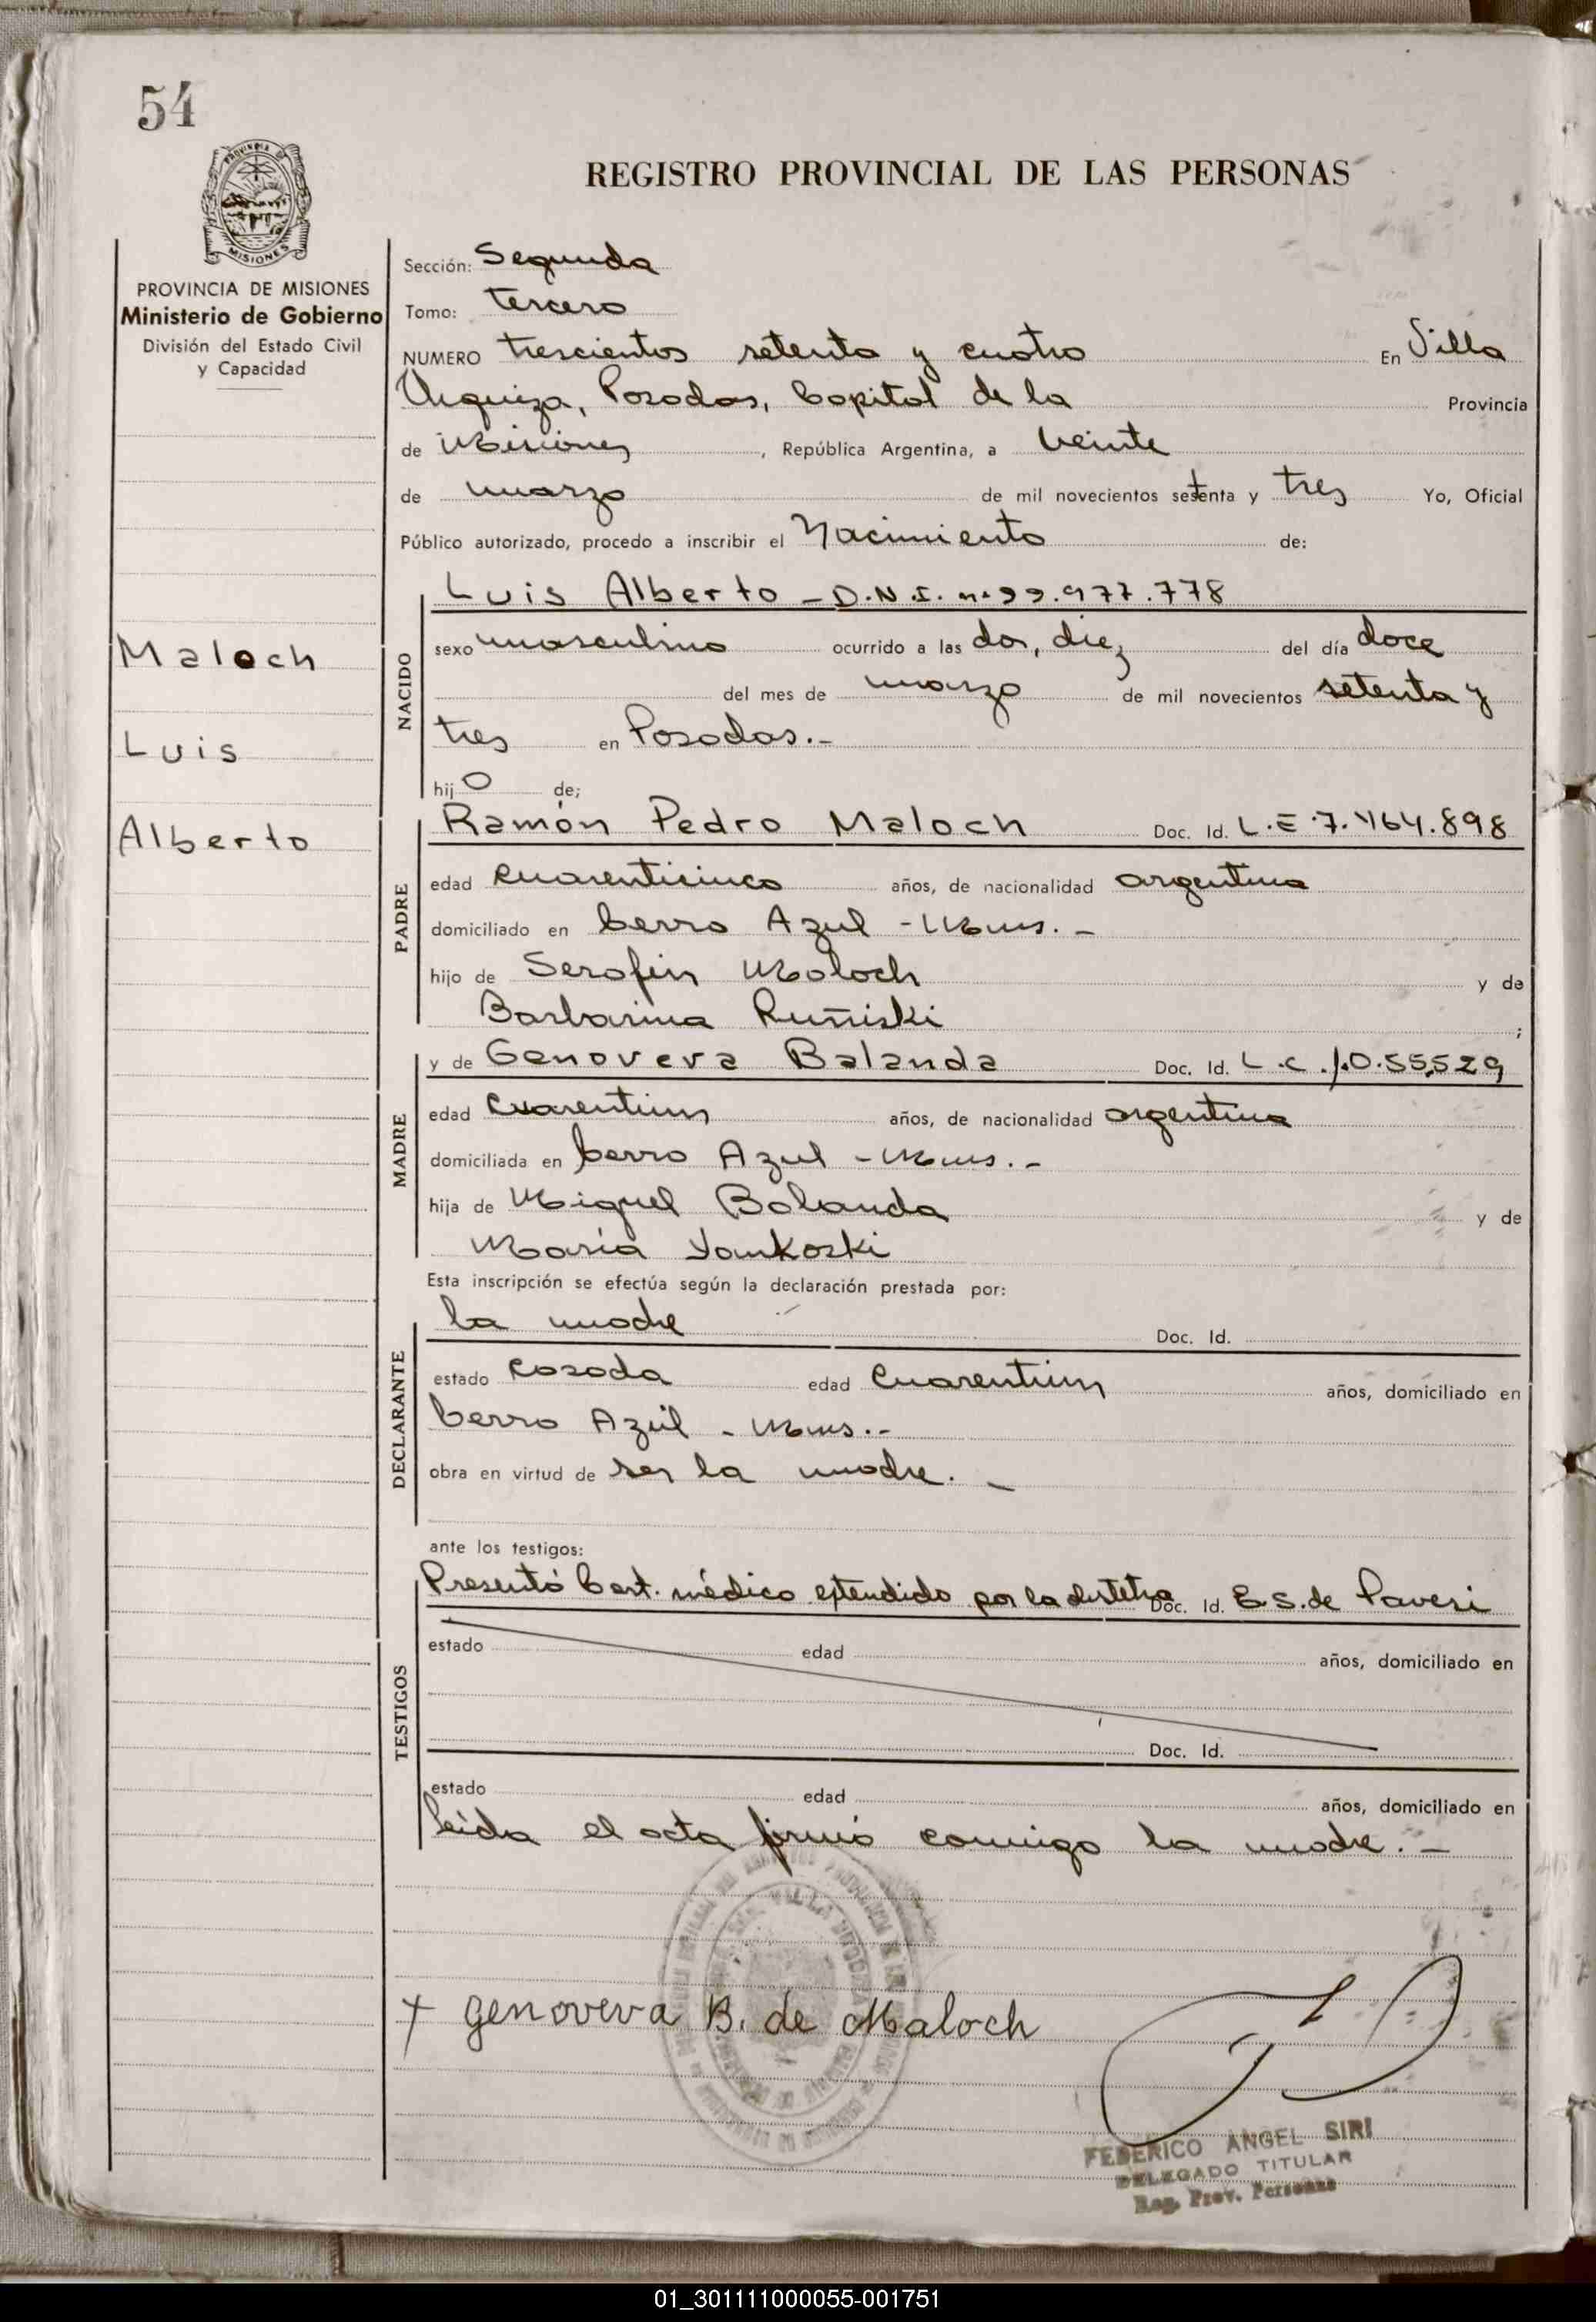 54
PROVINCIA
MISIONES
REGISTRO PROVINCIAL DE LAS PERSONAS
PROVINCIA DE MISIONES
Ministerio de Gobierno
División del Estado Civil
y Capacidad
Maloch
Luis
Alberto
Sección: Segunda
Tomo: tercero
NUMERO trescientos setenta y cuatro En Villa
Urquiza, Posadas, Capital de la Provincia
de Misiones, República Argentina, a veinte
de marzo de mil novecientos setenta y tres Yo, Oficial
Público autorizado, procedo a inscribir el Nacimiento de:
NACIDO
Luis Alberto - D.N.I. nº 99.977.778
sexo masculino ocurrido a las dos, diez del día doce
del mes de marzo de mil novecientos setenta y
tres en Posadas.-
hijo de;
PADRE
Ramón Pedro Maloch Doc. Id. L.E 7.464.898
edad cuarenticinco años, de nacionalidad argentina
domiciliado en Cerro Azul - Mnes. -
hijo de Serafin Maloch y de
Barbarina Ruñiski ;
MADRE
y de Genoveva Balanda Doc. Id. L.C. 1.055.529
edad cuarentiun años, de nacionalidad argentina
domiciliada en Cerro Azul - Mnes. -
hija de Miguel Balanda y de
María Yankoski
Esta inscripción se efectúa según la declaración prestada por:
DECLARANTE
la madre Doc. Id.
estado casada edad cuarentiun años, domiciliado en
Cerro Azúl - Mnes. -
obra en virtud de ser la madre. -
ante los testigos:
TESTIGOS
Presentó Cert. médico extendido por la Doc. Id. E.S. de Pavesi
estado edad años, domiciliado en
Doc. Id.
estado edad años, domiciliado en
leida el acta firmó conmigo la madre. -
+ Genoveva B. de Maloch
FEDERICO ANGEL SIRI
DELEGADO TITULAR
Reg. Prov. Personas
01_301111000055-001751